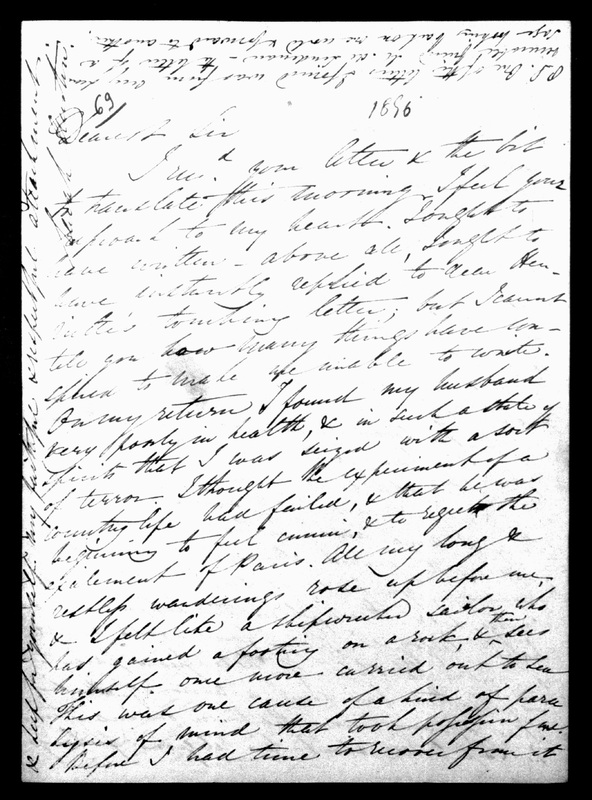 P.S. One of the letters I found was from our dear
venerable friend M. de Sismondi - the letter of a
sage looking back on one world & forward to another.
69/
1836
Dearest Sir
I recd your letter & the bit
to translate this morning. I feel your
reproach to my heart. I ought to
have written - above all, I ought to
have instantly replied to dear Hen-
riette's touching letter; but I cannot
tell you how many things have con-
spired to make me unable to write.
On my return I found my husband
very poorly in health, & in such a state of
spirits that I was seized with a sort
of terror. I thought the experiment of a
country life had failed, & that he was
beginning to feel ennui, & to regret the
excitement of Paris. All my long &
restless wanderings rose up before me,
& I felt like a shipwrecked sailor who
has gained a footing on a rock, & then sees
himself once more carried out to sea
This was one cause of a kind of para
lysis of mind that took possession of me.
Before I had time to recover from it
& keep for yourself my faithful & respectful attachment.
Sarah Austin.